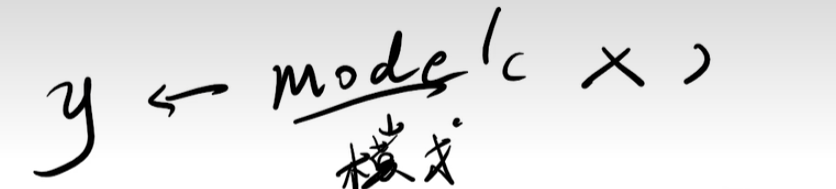 y ← model(x)
模式